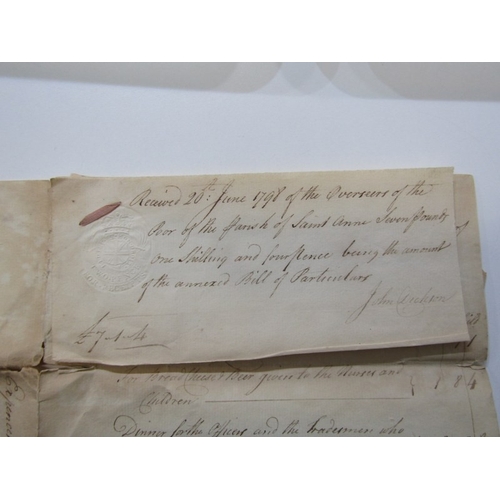 Received 20th June 1798 of the Overseers of the
Poor of the Parish of Saint Anne Seven Pounds
one Shilling and four Pence being the amount
of the annexed Bill of Particulars
John
£7-1-4
Bread Cheese & Beer given to the Nurses and
Children
1 8 4
Dinner for the Officers and the Tradesmen who